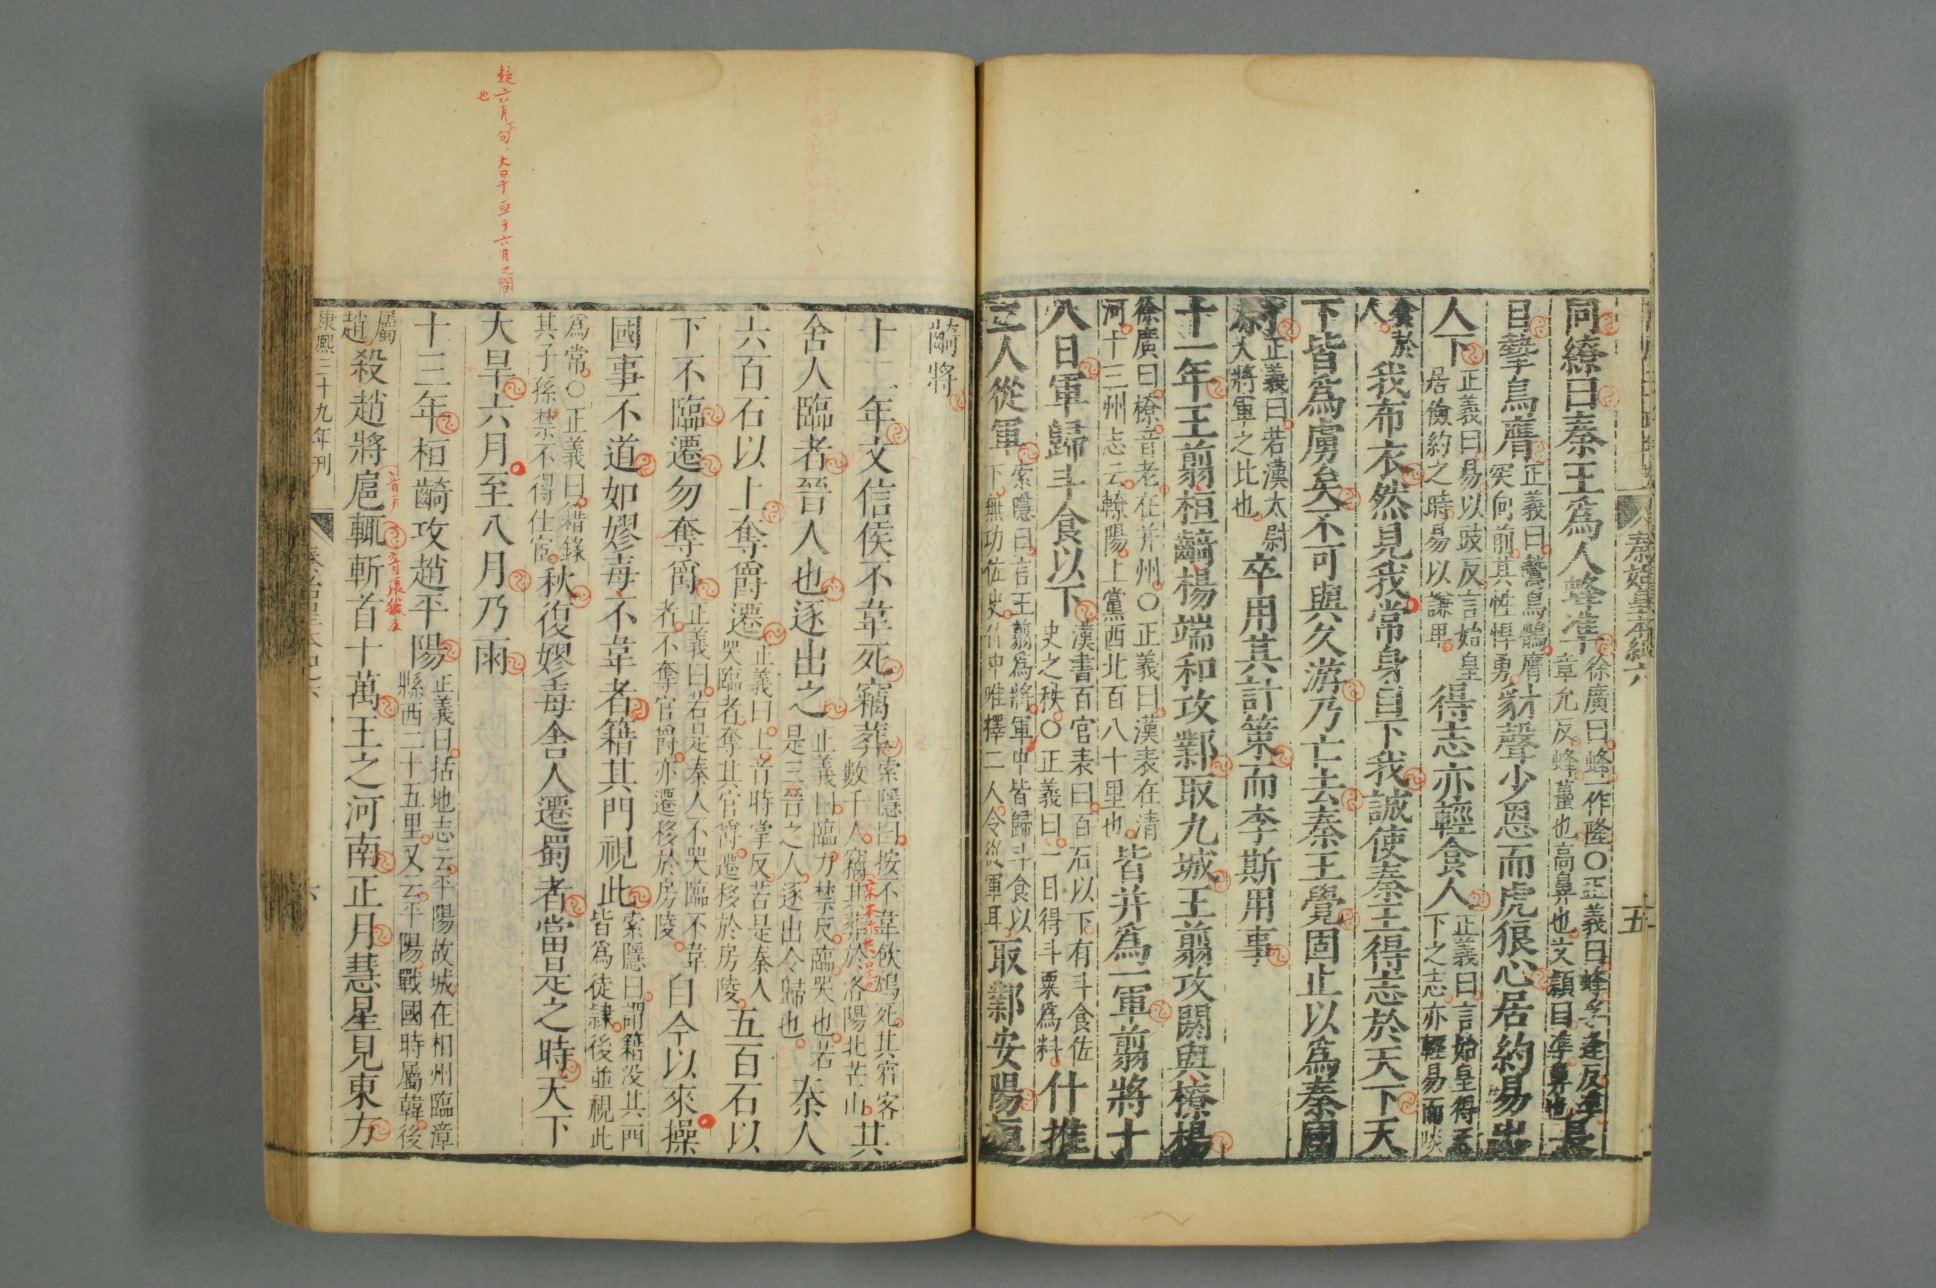 秦始皇本紀六 五
同繚曰秦王爲人蜂準徐廣曰蜂一作隆○正義曰蜂孚逢反準章允反蜂蠆也高鼻也文穎曰準鼻也長
目摯鳥膺正義曰鷙鳥鶻膺突向前其性悍勇豺聲少恩而虎狼心居約易出
人下正義曰易以豉反言始皇居儉約之時易以謙卑得志亦輕食人正義曰言始皇得天下之志亦輕易而啖
食於人我布衣然見我常身自下我誠使秦王得志於天下天
下皆爲虜矣不可與久游乃亡去秦王覺固止以爲秦國
尉正義曰若漢太尉大將軍之比也卒用其計策而李斯用事
十一年王翦桓齮楊端和攻鄴取九城王翦攻閼與橑楊
徐廣曰橑音老在并州○正義曰漢表在清河十三州志云轑陽上黨西北百八十里也皆并爲一軍翦將十
八日軍歸斗食以下漢書百官表曰百石以下有斗食佐史之秩○正義曰一日得斗粟爲料什推
二人從軍索隱曰言王翦爲將軍中皆歸斗食以下無功佐史什中唯擇二人令從軍耳取鄴安陽桓
齮將
十二年文信侯不韋死竊葬索隱曰按不韋飲鴆死其賓客數千人竊其葬於洛陽北芒山其
舍人臨者晉人也逐出之正義曰臨力禁反臨哭也若是三晉之人逐出令歸也秦人
六百石以上奪爵遷正義曰上音時掌反若是秦人哭臨者奪其官爵遷移於房陵五百石以
下不臨遷勿奪爵正義曰若是秦人不哭臨不韋者不奪官爵亦遷移於房陵自今以來操
國事不道如嫪毐不韋者籍其門視此索隱曰謂籍没其一門皆爲徒隸後並視此
爲常○正義曰籍錄其子孫禁不得仕宦秋復嫪毐舍人遷蜀者當是之時天下
大旱六月至八月乃雨
疑六月下句大旱至于六月之間也
十三年桓齮攻趙平陽正義曰括地志云平陽故城在相州臨漳縣西二十五里又云平陽戰國時屬韓後
屬趙殺趙將扈輒斬首十萬王之河南正月彗星見東方
康熙三十九年刊 秦始皇本紀六 六